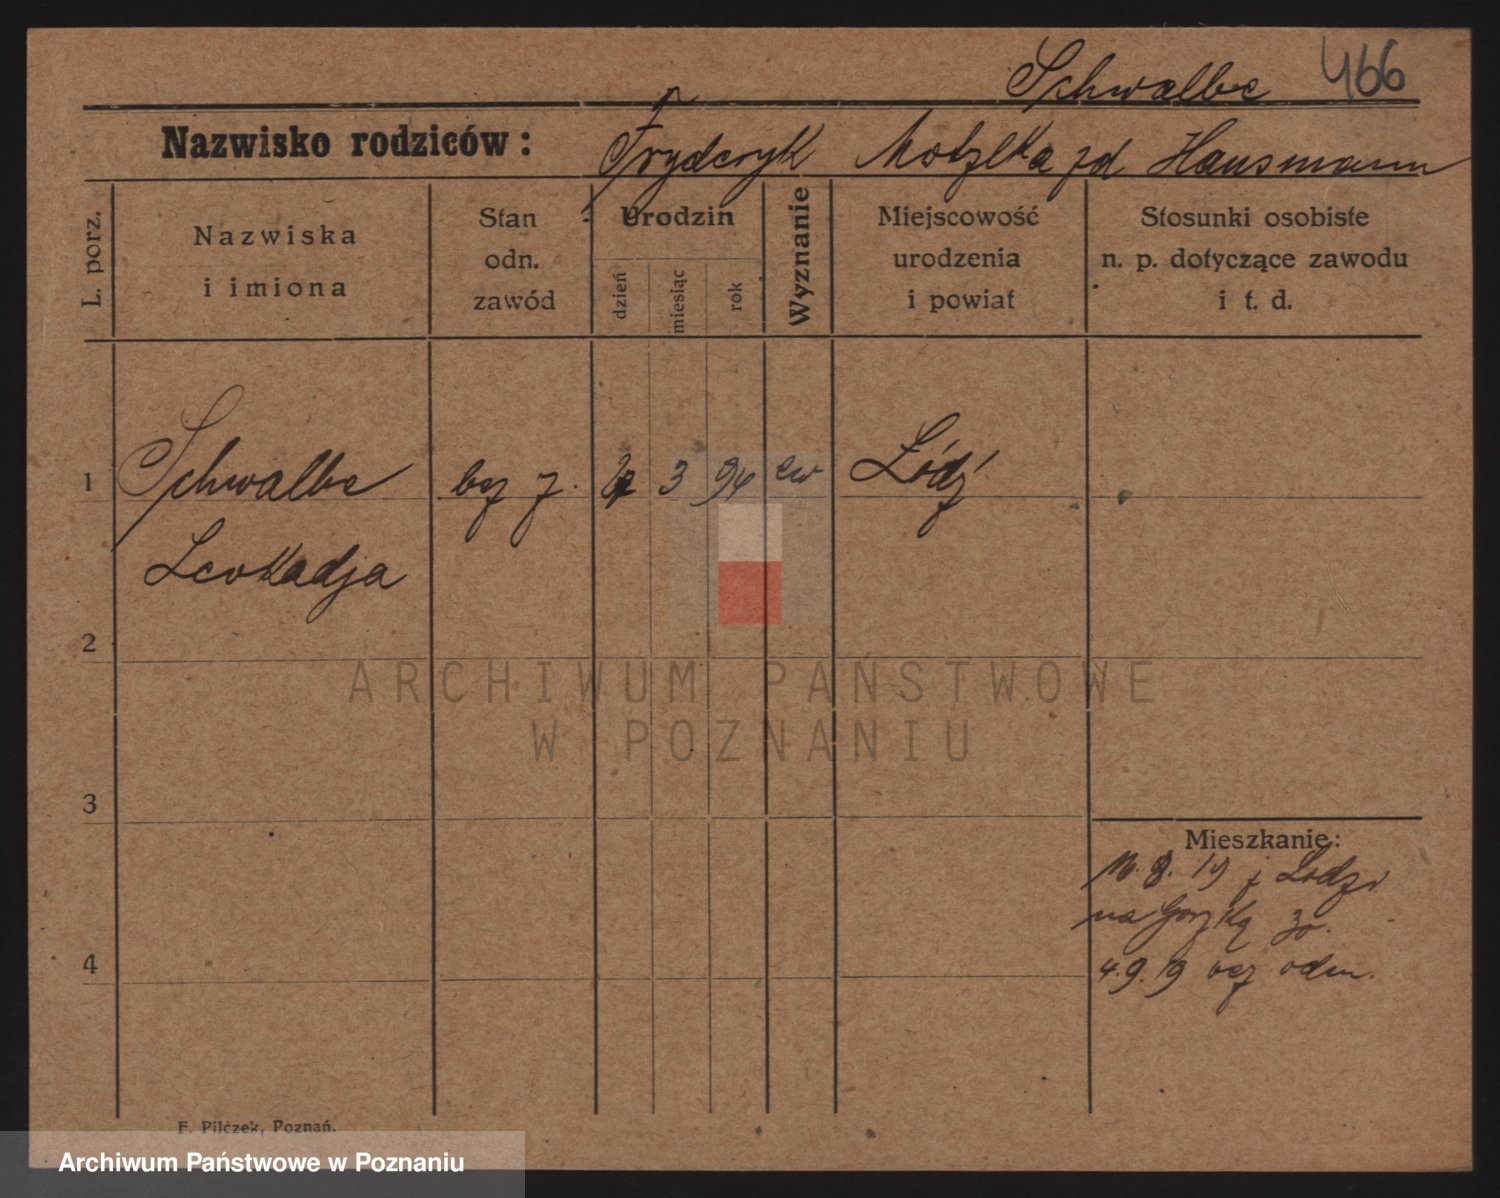 Schwalbe 466
Nazwisko rodziców: Fryderyk Matylka zd Hausmann
L. porz.
Nazwiska
i imiona
Stan
odn.
zawód
Urodzin
dzień
miesiąc
rok
Wyznanie
Miejscowość
urodzenia
i powiat
Stosunki osobiste
n. p. dotyczące zawodu
i t. d.
1 Schwalbe bez z. 3 94 ew Łódź
Leokadja
2
3
4
Mieszkanie:
8. 19 z Łodzi
na 30.
4. 9. 19 odm.
F. Pilczek, Poznań.
ARCHIWUM PAŃSTWOWE
W POZNANIU
Archiwum Państwowe w Poznaniu